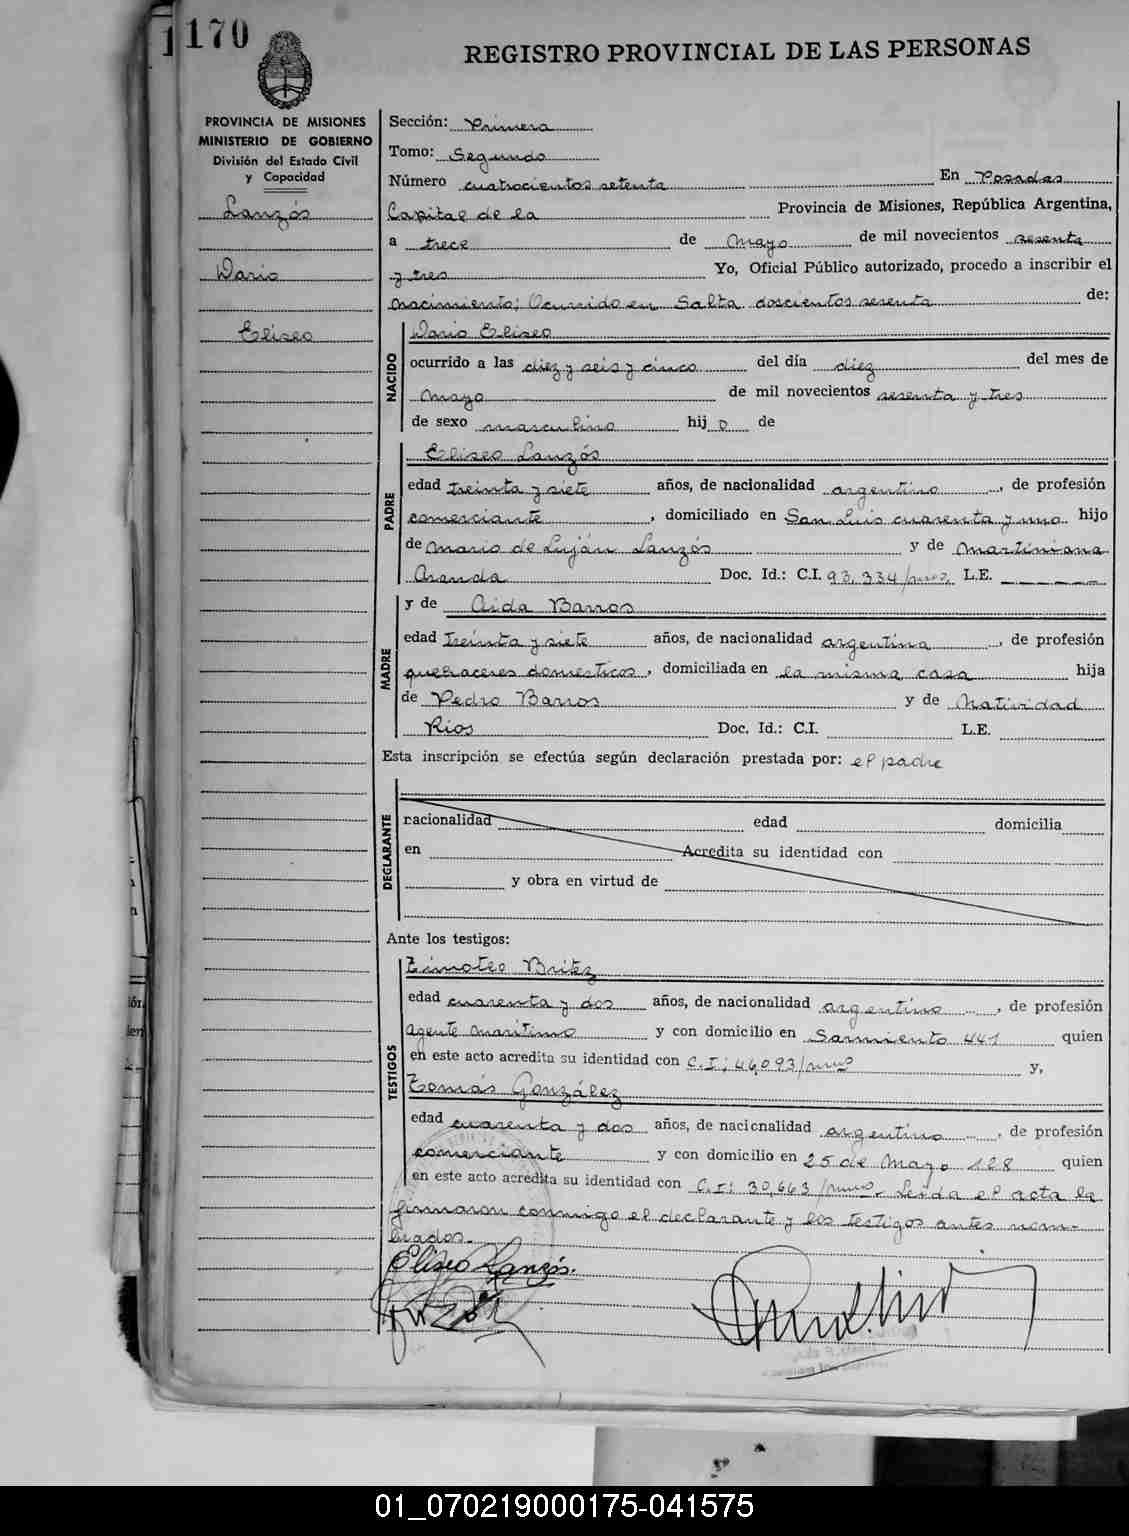 170
REGISTRO PROVINCIAL DE LAS PERSONAS
PROVINCIA DE MISIONES
MINISTERIO DE GOBIERNO
División del Estado Civil
y Capacidad
Lanzós
Dario
Eliseo
Sección: Primera
Tomo: Segundo
Número cuatrocientos setenta En Posadas
Capital de la Provincia de Misiones, República Argentina,
a trece de Mayo de mil novecientos sesenta
y tres Yo, Oficial Público autorizado, procedo a inscribir el
nacimiento; Ocurrido en Salta doscientos sesenta de:
NACIDO
Dario Eliseo
ocurrido a las diez y seis y cinco del día diez del mes de
Mayo de mil novecientos sesenta y tres
de sexo masculino hijo de
PADRE
Eliseo Lanzós
edad treinta y siete años, de nacionalidad argentino, de profesión
comerciante, domiciliado en San Luis cuarenta y uno hijo
de Mario de Luján Lanzós y de Martiniana
Aranda Doc. Id.: C.I. 93,334/mnes. L.E.
MADRE
y de Aida Barros
edad treinta y siete años, de nacionalidad argentina, de profesión
quehaceres domesticos, domiciliada en la misma casa hija
de Pedro Barros y de Natividad
Rios Doc. Id.: C.I. L.E.
Esta inscripción se efectúa según declaración prestada por: el padre
DECLARANTE
racionalidad edad domicilia
en Acredita su identidad con
y obra en virtud de
Ante los testigos:
TESTIGOS
Timoteo Britez
edad cuarenta y dos años, de nacionalidad argentino, de profesión
Agente Maritimo y con domicilio en Sarmiento 441 quien
en este acto acredita su identidad con C.I; 46,093/mnes y,
Tomás González
edad cuarenta y dos años, de nacionalidad argentino, de profesión
comerciante y con domicilio en 25 de Mayo 128 quien
en este acto acredita su identidad con C.I: 30,663/mnes. Leida el acta la
firmaron conmigo el declarante y los testigos antes nom-
brados.-
Eliseo Lanzós.
01_070219000175-041575